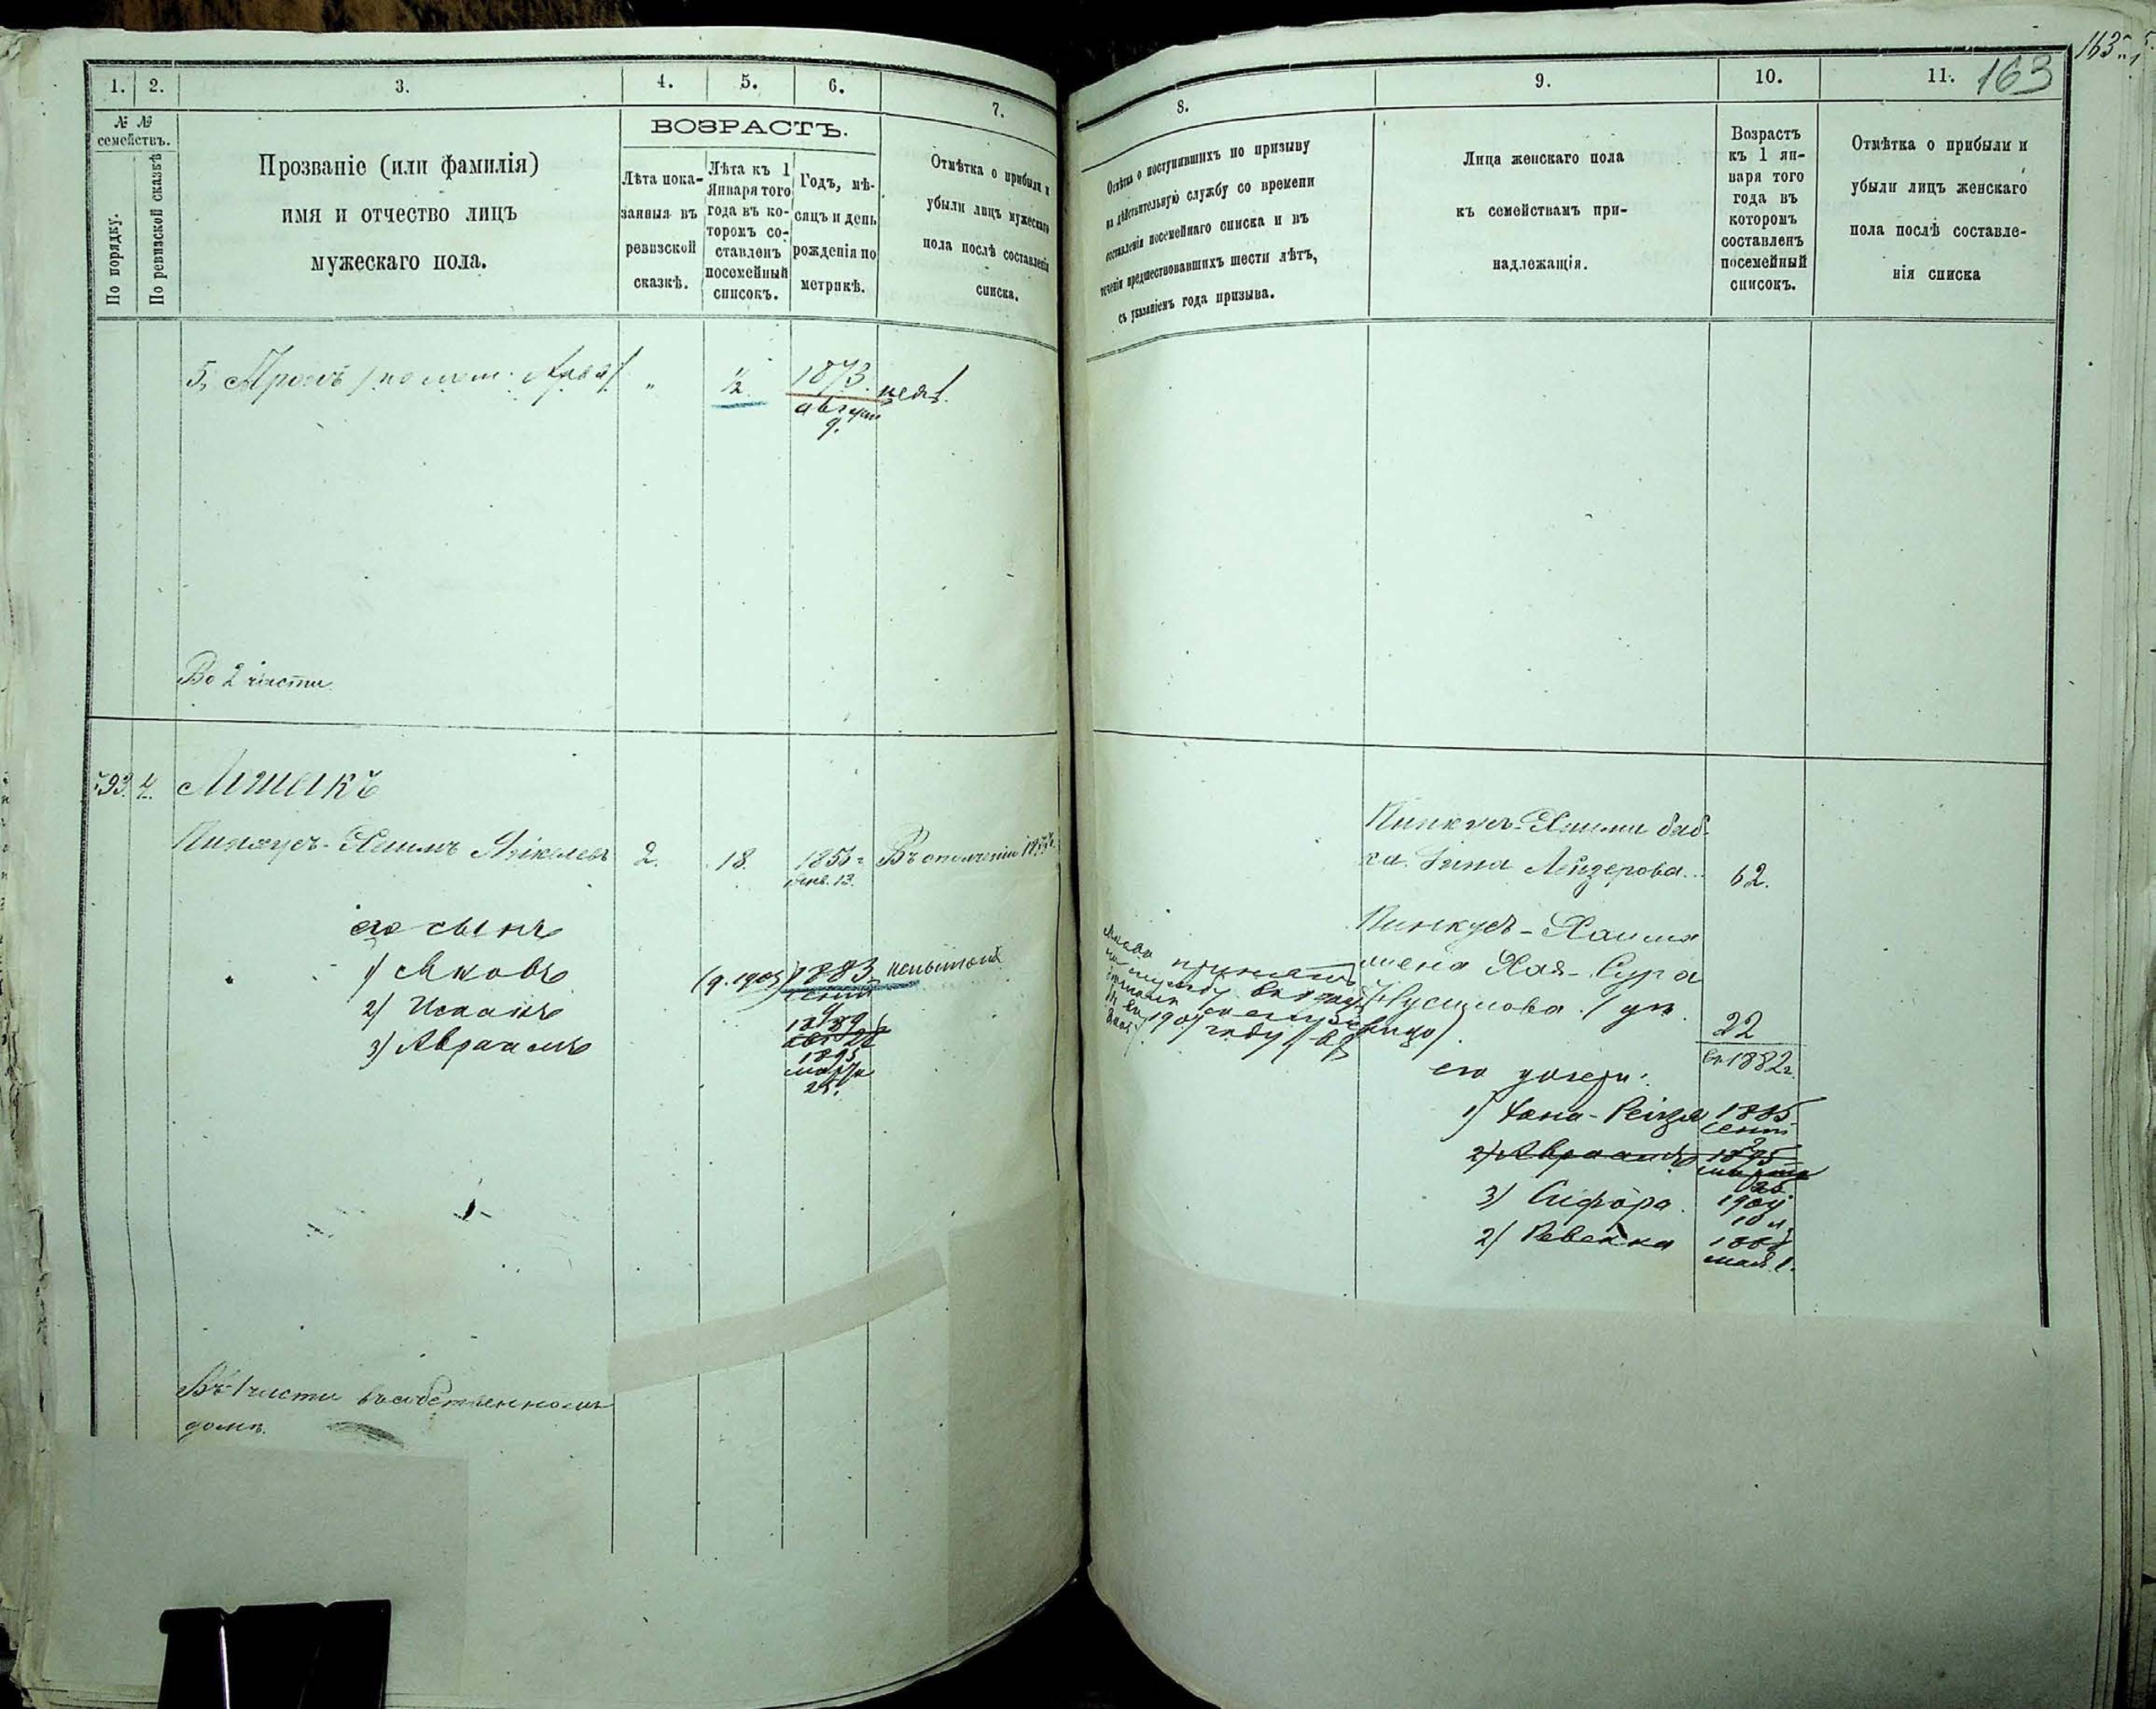 163
163
1.
2.
3.
4.
5.
6.
7.
№ №
семействъ.
По порядку.
По ревизской сказкѣ
Прозваніе (или фамилія)
имя и отчество лицъ
мужескаго пола.
ВОЗРАСТЪ.
Лѣта пока-
занныя въ
ревизской
сказкѣ.
Лѣта къ 1
Января того
года въ ко-
торомъ со-
ставленъ
посемейный
списокъ.
Годъ, мѣ-
сяцъ и день
рожденія по
метрикѣ.
Отмѣтка о прибыли и
убыли лицъ мужескаго
пола послѣ составленія
списка.
5, Аронъ
"
½
1873.
августа
9.
Во 2 части
593. 4.
Лишакъ
Пинкусъ-Хаимъ Янкелевъ 2. 18. 1855
янв. 13.
его сынъ
1) Яковъ 1883
сент
9
2) Исаакъ 1889
авг 26
3) Авраамъ 1895
марта
25.
Въ 1 части въ собственномъ
домѣ.
8.
9.
10.
11.
Отмѣтка о поступившихъ по призыву
на дѣйствительную службу со времени
составленія посемейнаго списка и въ
теченіи предшествовавшихъ шести лѣтъ,
съ указаніемъ года призыва.
Лица женскаго пола
къ семействамъ при-
надлежащія.
Возрастъ
къ 1 ян-
варя того
года въ
которомъ
составленъ
посемейный
списокъ.
Отмѣтка о прибыли и
убыли лицъ женскаго
пола послѣ составле-
нія списка
Пинкусъ-Хаима баб-
ка Лейзерова 62.
Пинкусъ-Хаима
жена Хая-Сура
22
въ 1882 г.
его дочери:
1) Хана-Рейзя 1885
сент
2) Авраамъ 1895
марта
25
3) Сифора. 1904
10 л.
2) Ревекка
мая 1.